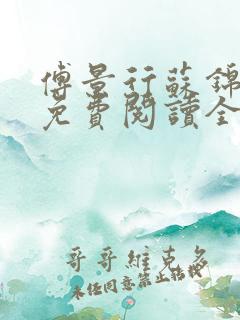 傅景行蘇錦
免費閱讀全
哥哥維克多
未经同意禁止转载